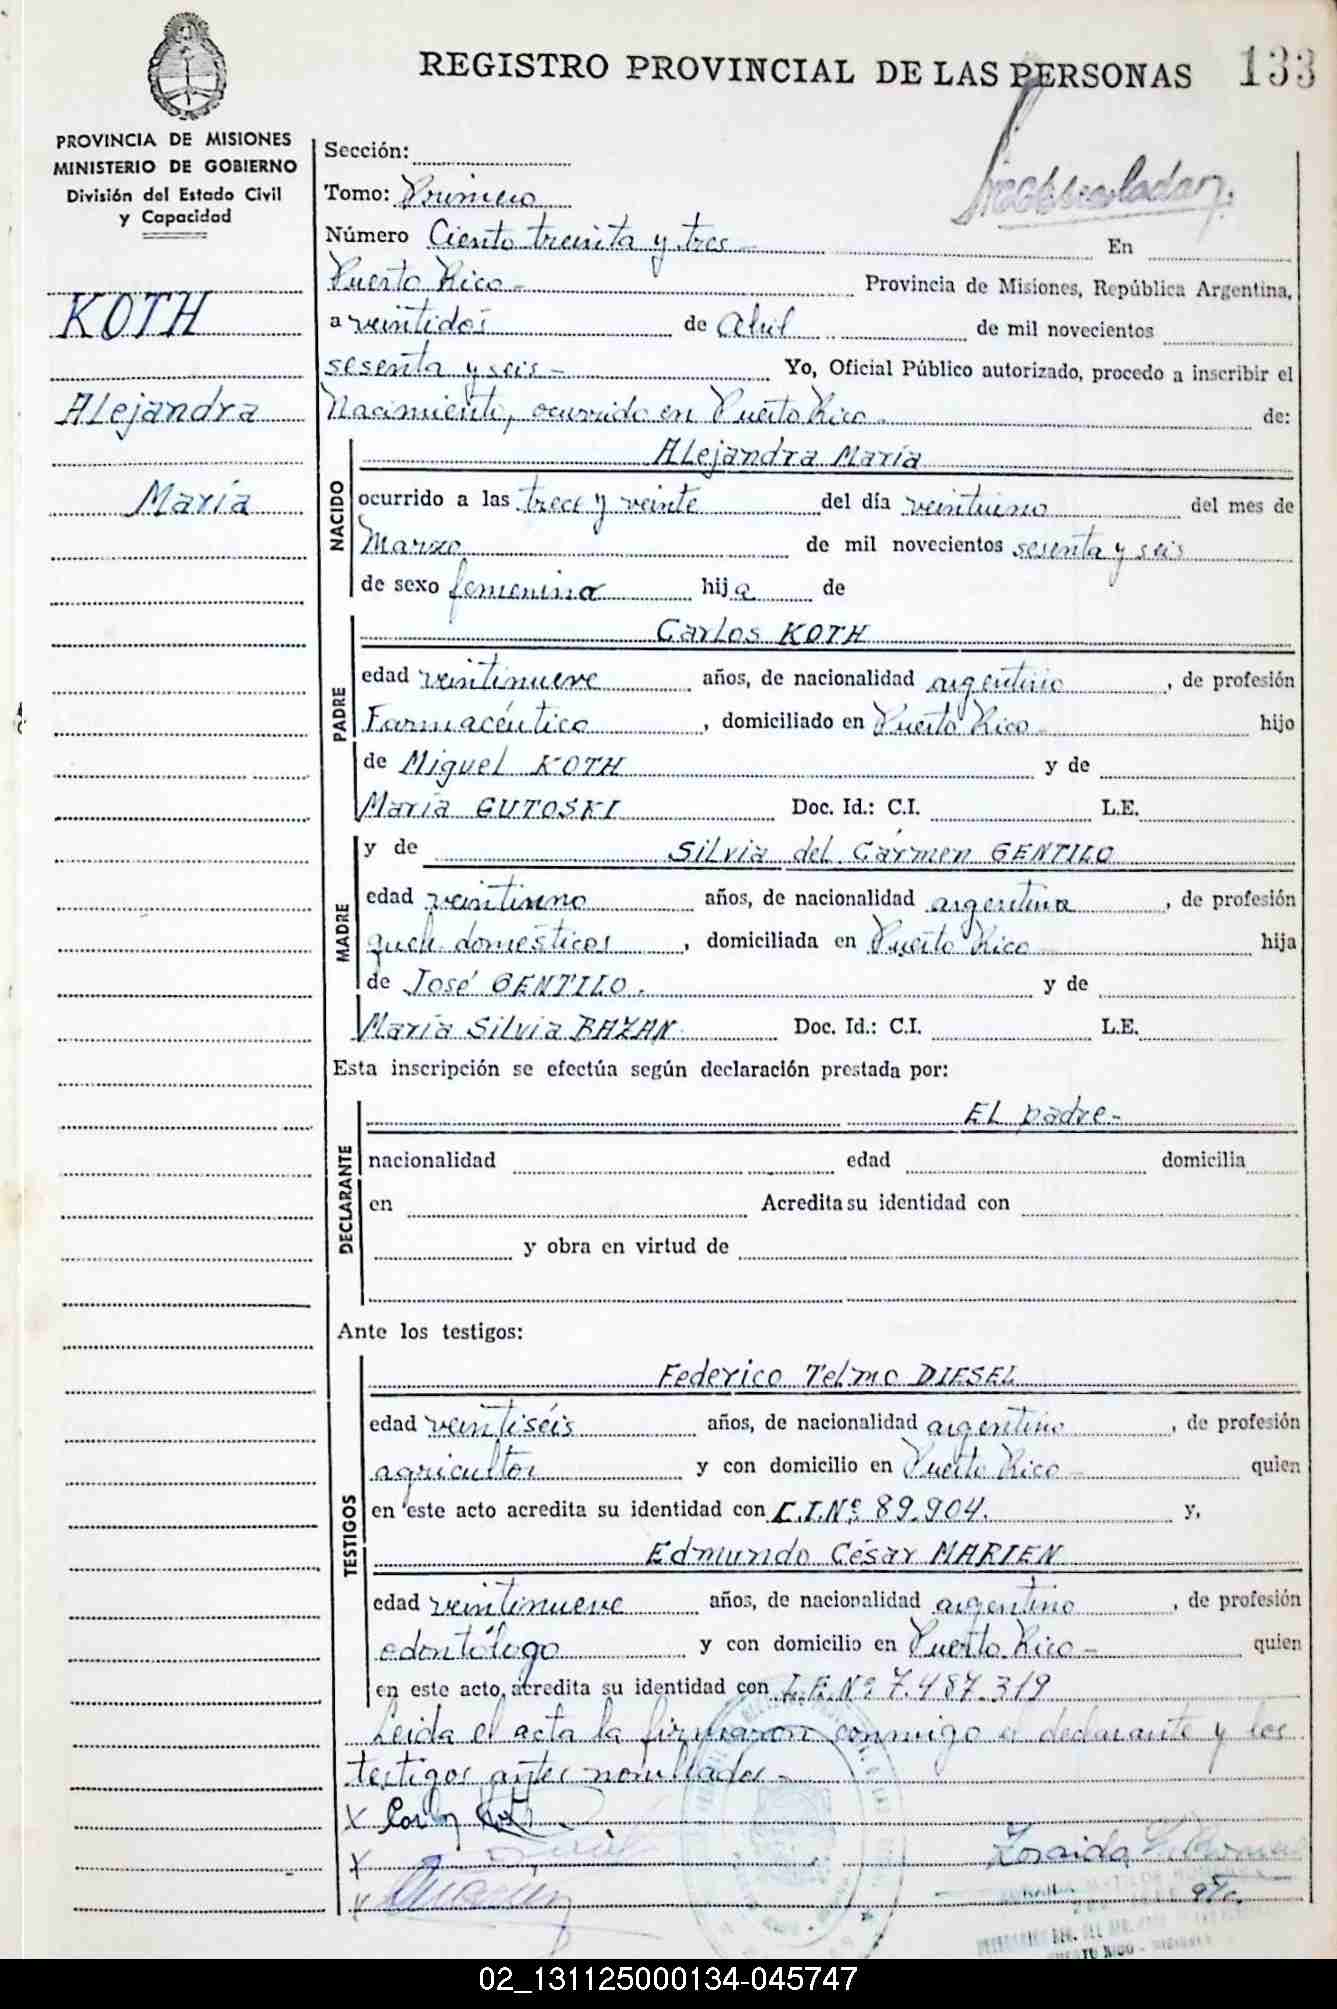 REGISTRO PROVINCIAL DE LAS PERSONAS 133
PROVINCIA DE MISIONES
MINISTERIO DE GOBIERNO
División del Estado Civil
y Capacidad
KOTH
Alejandra
María
Sección:
Tomo: Primero
Número Ciento treinta y tres - En
Puerto Rico - Provincia de Misiones, República Argentina,
a veintidos de abril de mil novecientos
sesenta y seis - Yo, Oficial Público autorizado, procedo a inscribir el
Nacimiento, ocurrido en Puerto Rico - de:
NACIDO
Alejandra María
ocurrido a las trece y veinte del día veintiuno del mes de
Marzo de mil novecientos sesenta y seis
de sexo femenino hija de
PADRE
Carlos KOTH
edad veintinueve años, de nacionalidad argentino, de profesión
Farmacéutico, domiciliado en Puerto Rico - hijo
de Miguel KOTH y de
María GUTOSKI Doc. Id.: C.I. L.E.
MADRE
y de Silvia del Cármen GENTILO
edad veintiuno años, de nacionalidad argentina, de profesión
queh. domésticos, domiciliada en Puerto Rico - hija
de José GENTILO. y de
María Silvia BAZAN. Doc. Id.: C.I. L.E.
Esta inscripción se efectúa según declaración prestada por:
DECLARANTE
EL padre-
nacionalidad edad domicilia
en Acredita su identidad con
y obra en virtud de
Ante los testigos:
TESTIGOS
Federico Telmo DIESEL
edad veintiséis años, de nacionalidad argentino, de profesión
agricultor y con domicilio en Puerto Rico - quien
en este acto acredita su identidad con C.I.Nº 89.904. y,
Edmundo César MARIEN
edad veintinueve años, de nacionalidad argentino, de profesión
odontólogo y con domicilio en Puerto Rico - quien
en este acto, acredita su identidad con L.E.Nº 7.487.319
Leida el acta la firmaron conmigo el declarante y los
testigos antes nombrados -
X Carlos Koth
X
X
Zoraida
02_131125000134-045747